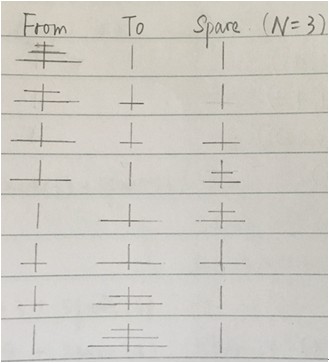 From To Spare (N=3)